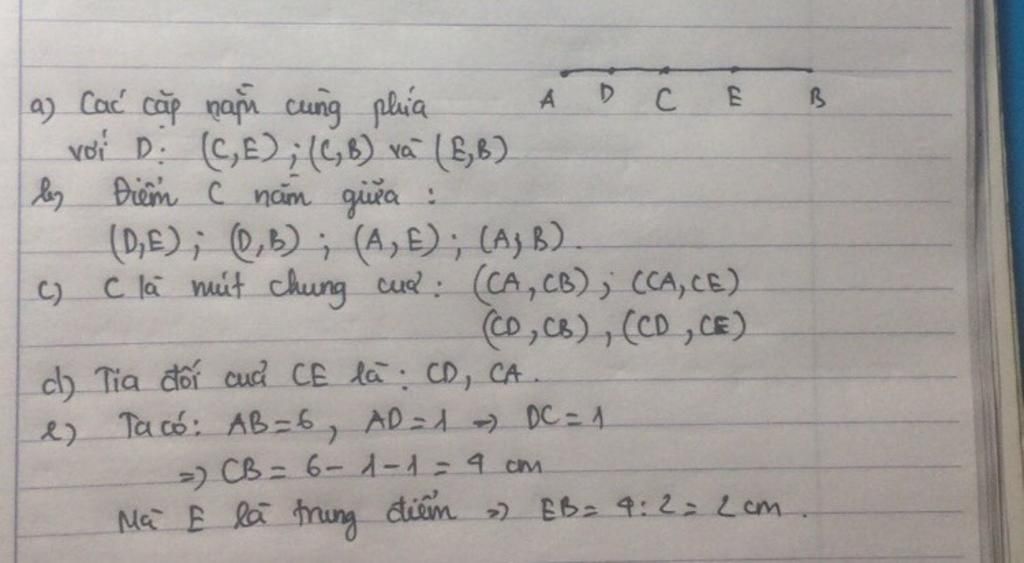 A D C E B
a) Các cặp nằm cùng phía
với D: (C,E); (C,B) và (E,B)
b) Điểm C nằm giữa:
(D,E); (D,B); (A,E); (A;B).
c) C là mút chung của: (CA,CB); (CA,CE)
(CD,CB), (CD,CE)
d) Tia đối của CE là: CD, CA.
e) Ta có: AB=6, AD=1 => DC=1
=> CB= 6-1-1= 4 cm
Mà E là trung điểm => EB= 4:2= 2cm.